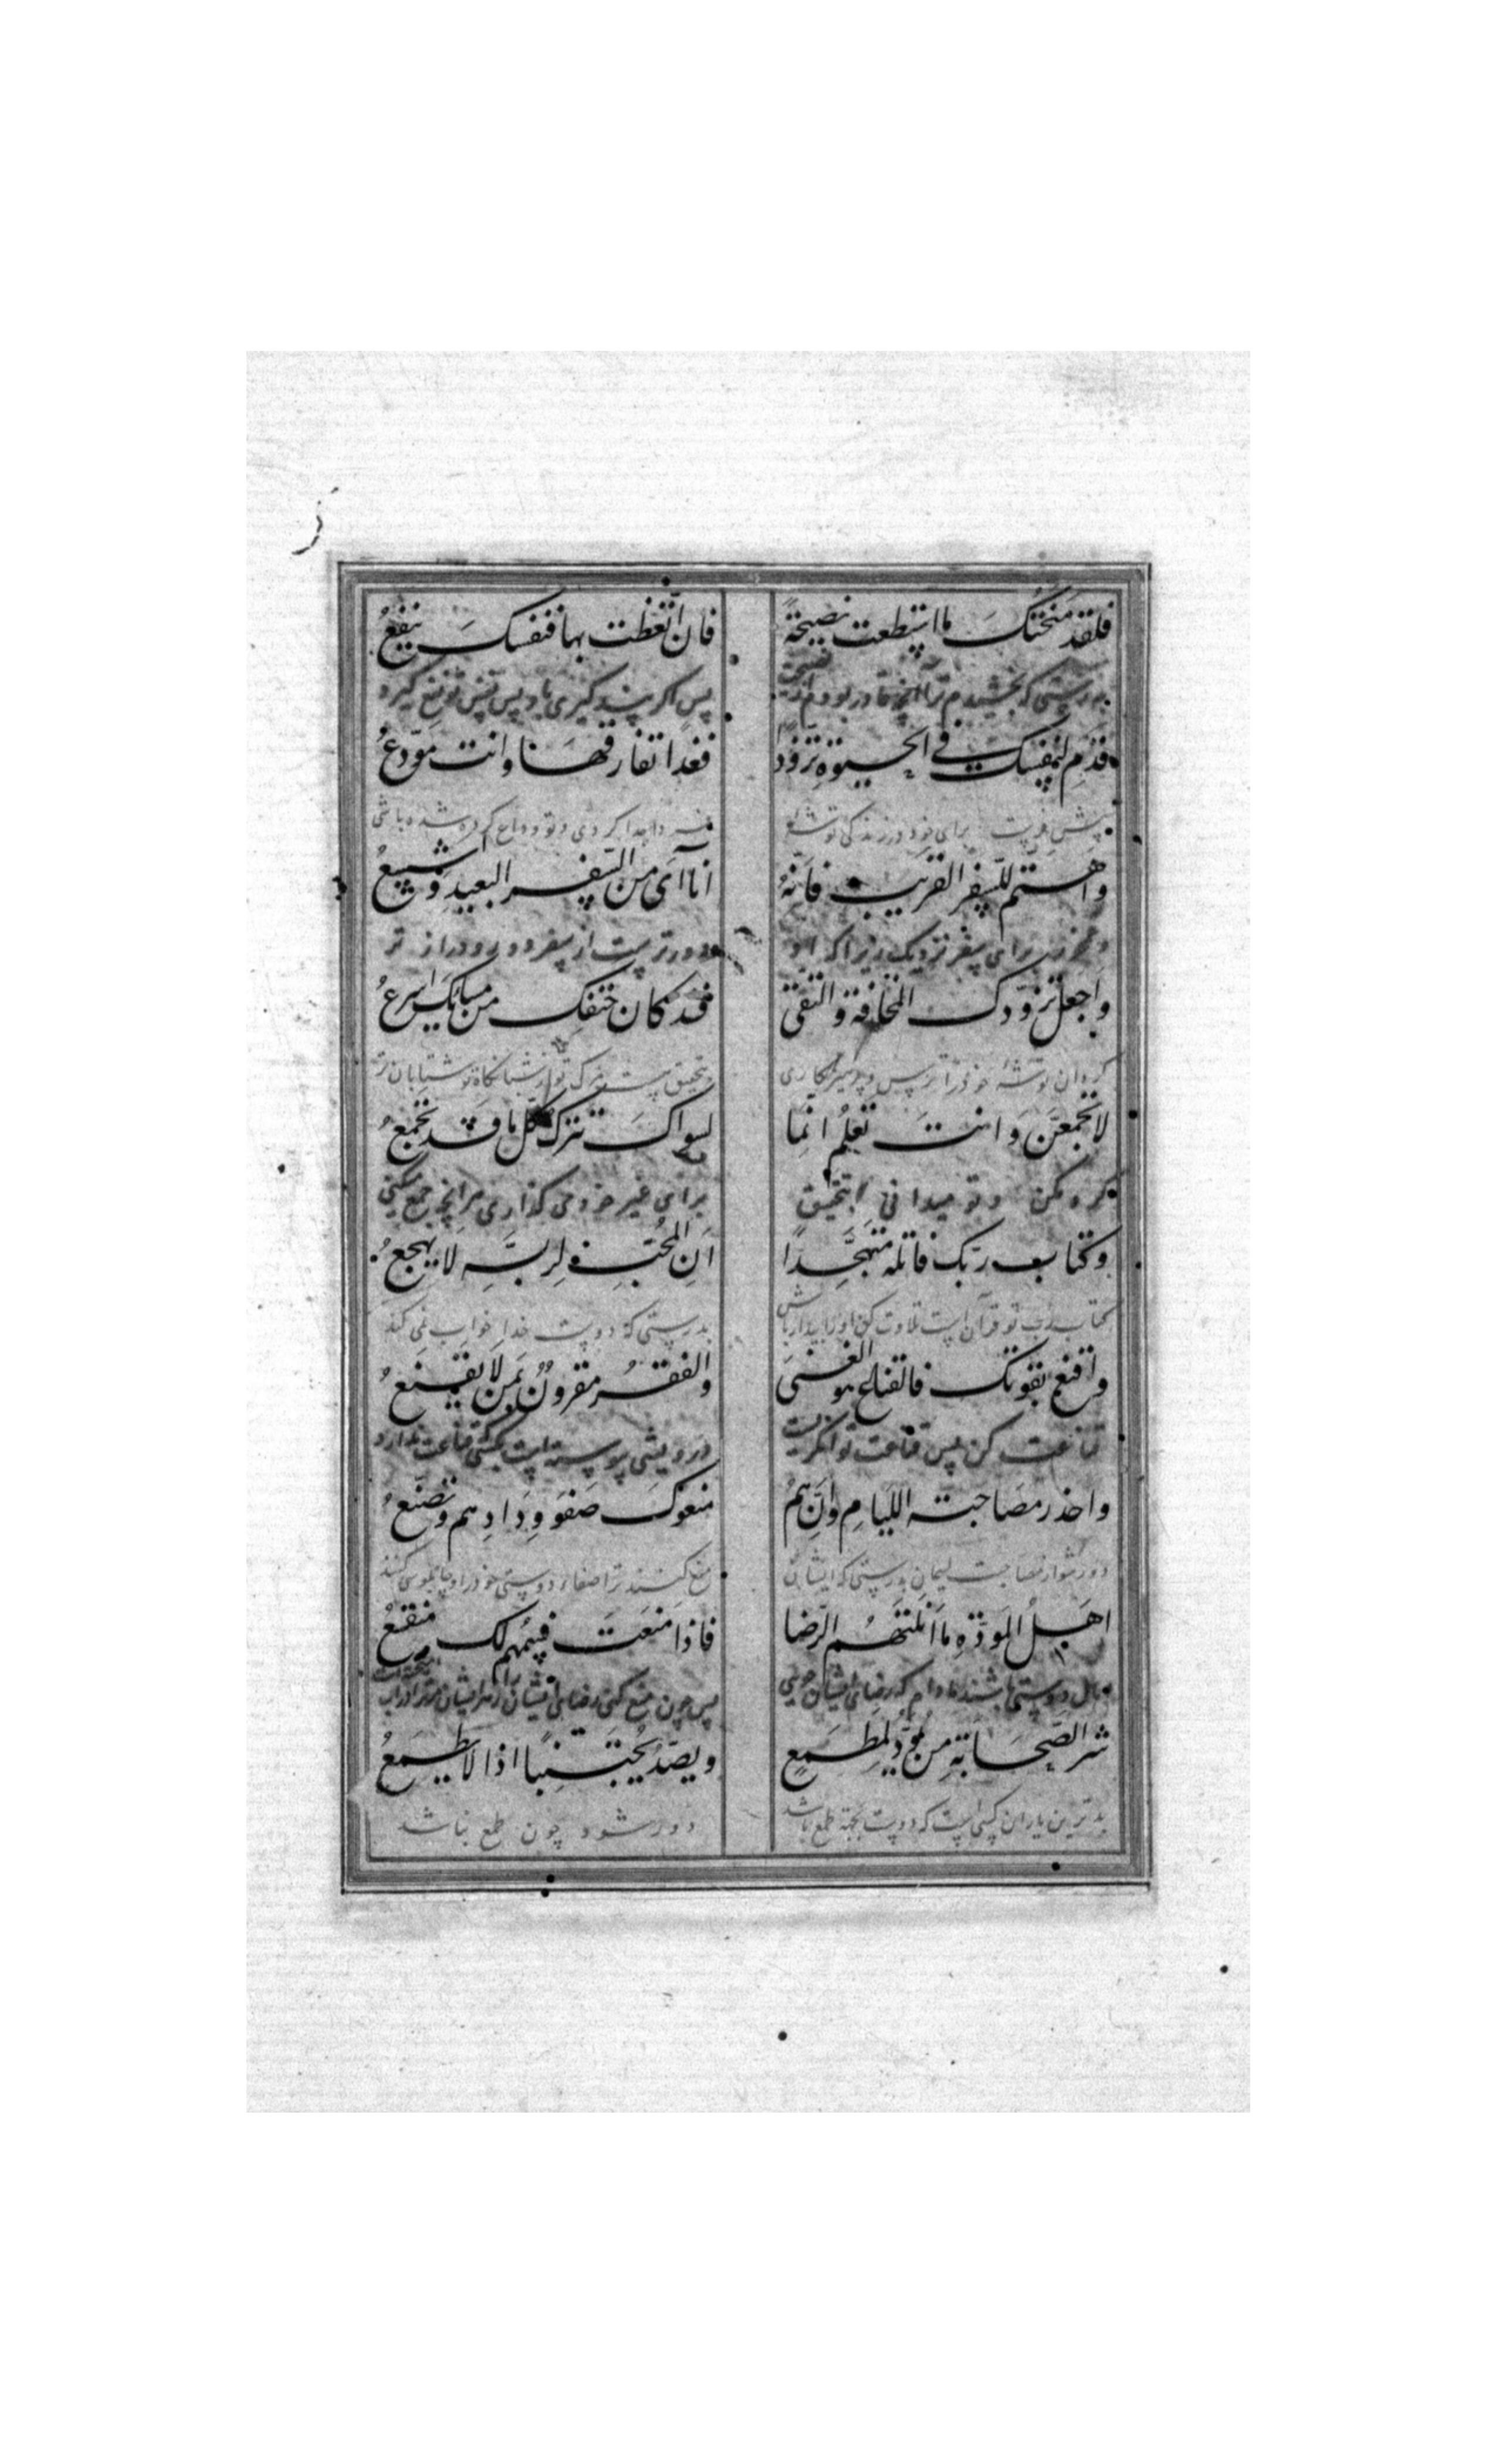 فلقد منحتک ما استطعت نصیحةً
فان اتّعظت بها فنفسکَ ینفعُ
بدرستی که بخشیدم ترا آنچه قادر بودم از نصیحت
پس اکر پند کیری با و پس نفس تو نفع کیرد
قدّم لنفسک فی الحیوةِ تزوّدًا
فغدًا تفارقهَا وانت مودّعُ
برای خود در زندکی توشهٔ
جدا کردی و تو وداع کرده شده باشی
واهتم للسفر القریب فانّهُ
انأای من السّفر البعیدِ و اشیعُ
برای سفر نزدیک زیرا که او
دورترست از سفر دور و دراز تر
واجعل تزوّدک المخافة والتقی
قد کان حتفک من مسائک اسرعُ
کردان توشهٔ خود را ترس و پرهیزکاری
بتحقیق هست مرک تو از شبانکاه تو شتابان تر
لا تجمعَن وَ انتَ تعلمُ انّما
لسواکَ تترک کلّ ما قد تجمعُ
مکن و تو میدانی بتحقیق
برای غیر خود می کذاری هر آنچه جمع میکنی
وکتاب ربّک فاتله متهجّدًا
انّ المحبّ لربّهِ لَا یهجعُ
کتاب رب تو قرآن است تلاوت کن او را بیدار باش
بدرستی که دوست خدا خواب نمی کند
واقنع بقوتک فالقناع هو الغنیَ
والفقرُ مقرونٌ بمن لَا یقنعُ
قناعت کن پس قناعت توانکریست
درویشی پیوسته است بکسی قناعت ندارد
واحذر مصاحبة اللیامِ وانّهمُ
منعوکَ صَفوَ وِدَادِهم و تصنّعُ
دور شو از مصاحبت لیمان بدرستی که ایشان
منع کنند ترا صفاء دوستی خود را و چاپلوسی کنند
اهلُ المَودّةِ ما انلتهُم الرّضا
فاذا منَعتَ فسُمهم لک منقعُ
اهل دوستی باشند مادام که رضای ایشان جویی
پس چون منع کنی رضای ایشان را زهر ایشان
شر الصّحَابةِ من یودّ لمِطمَعٍ
ویصدّ مُجتنبًا اذا لا یطمعُ
بدترین یاران کسی است که دوست بجهة طمع باشد
دور شود چون طمع نباشد